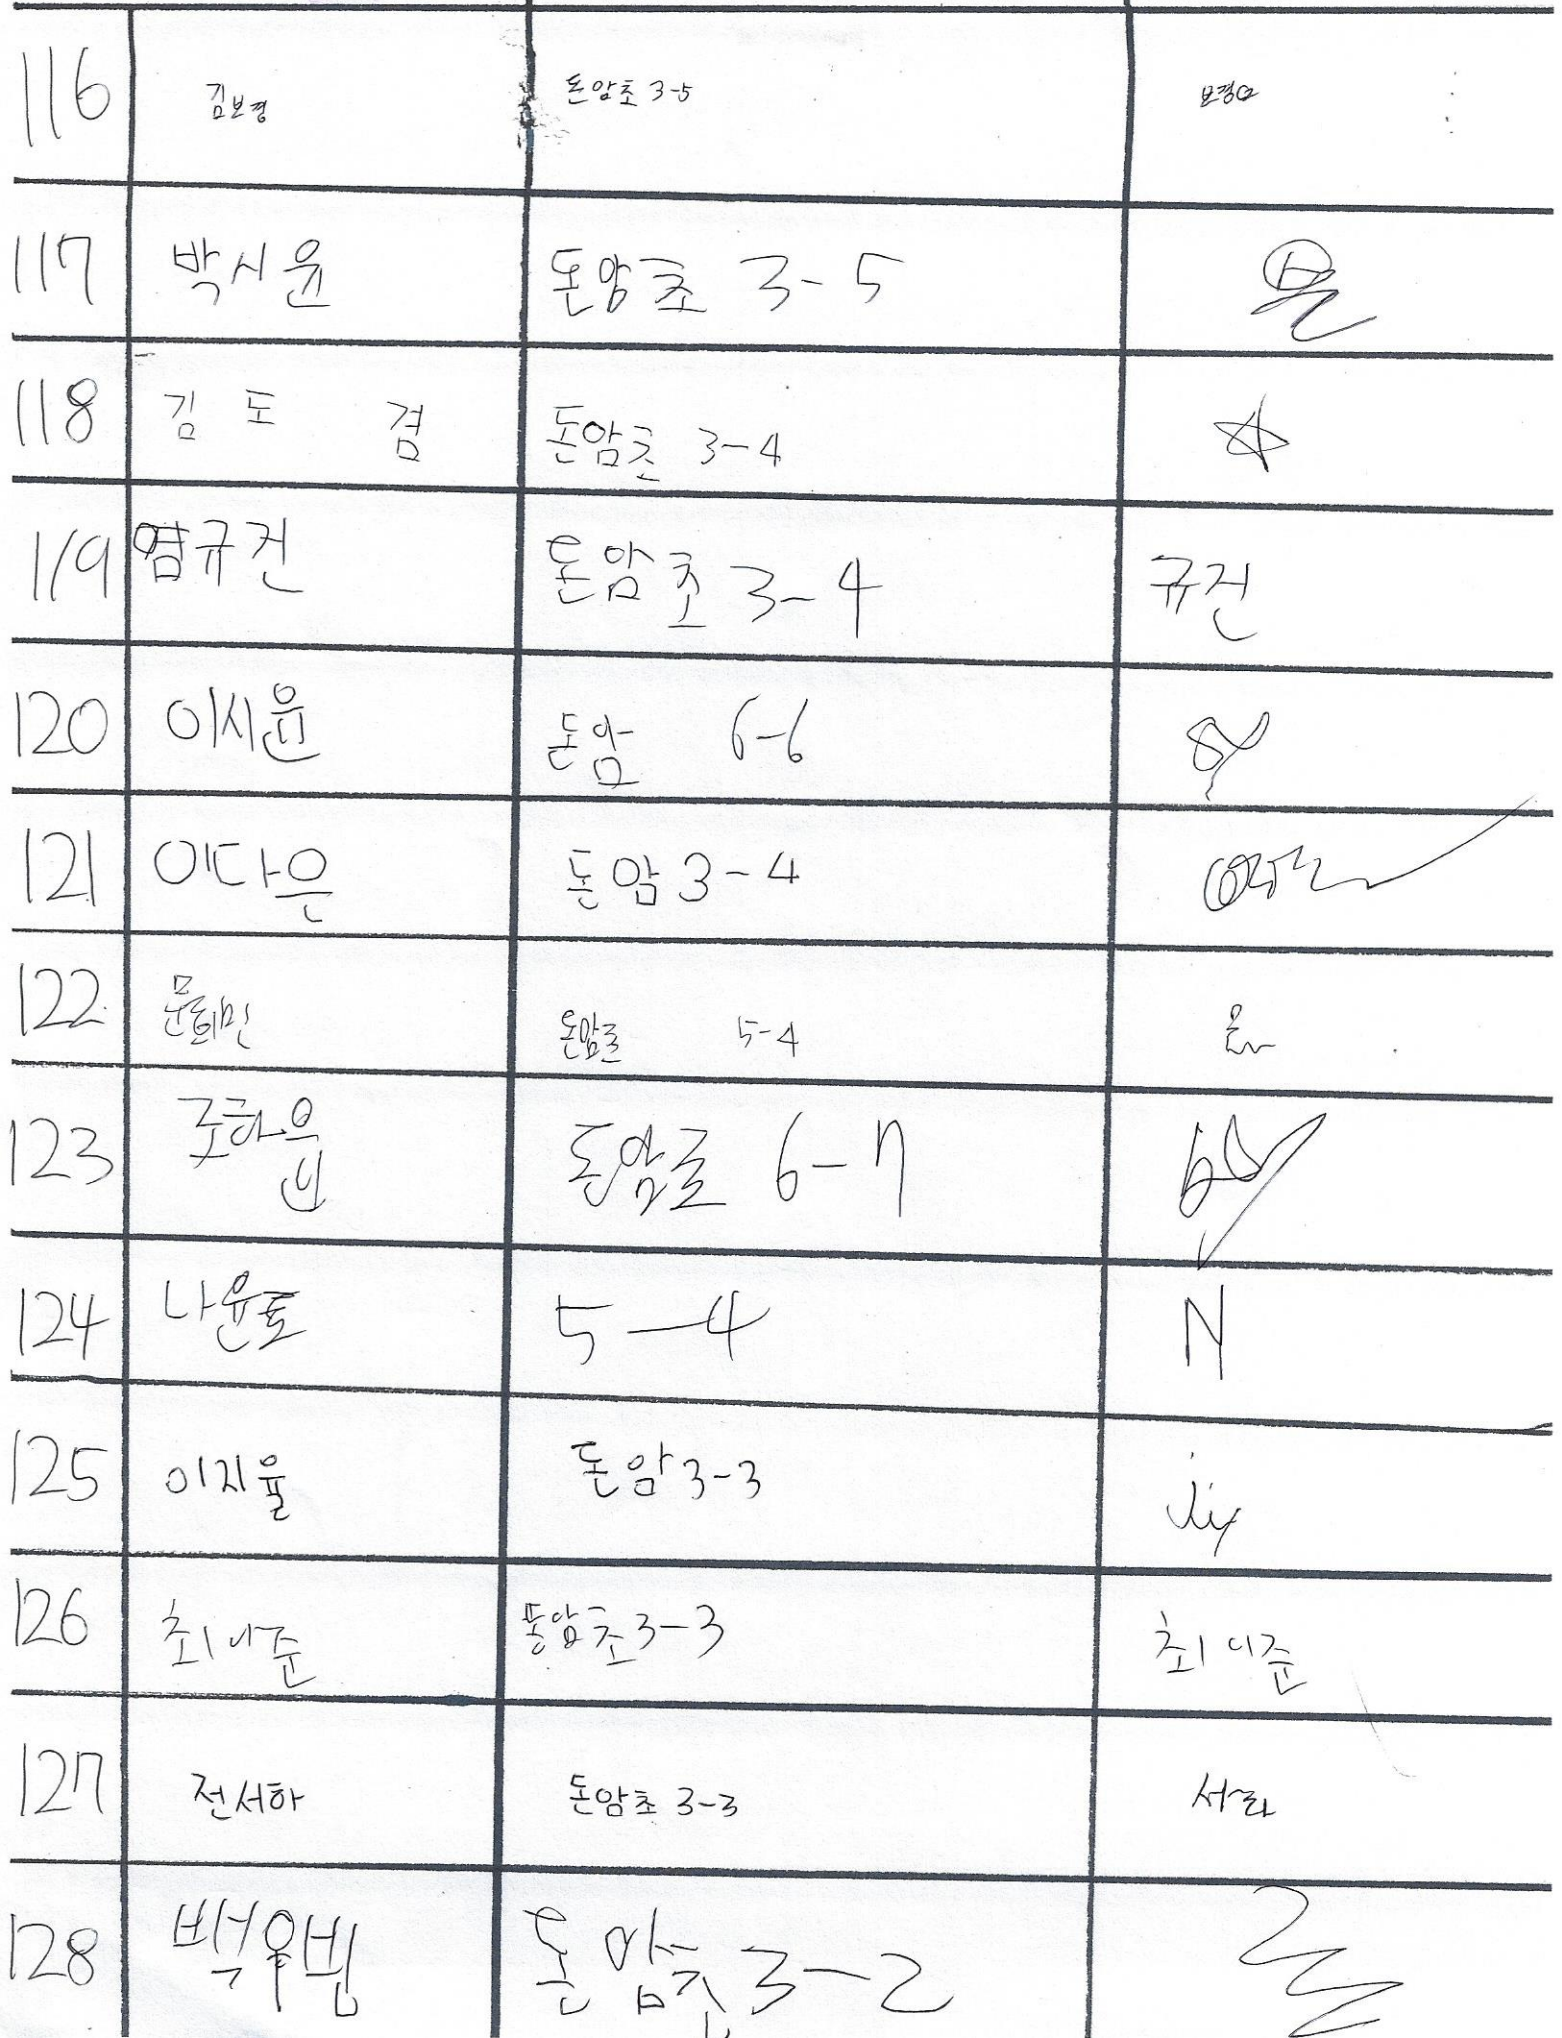 116 김보경 돈암초 3-5
117 박시윤 돈암초 3-5
118 김도겸 돈암초 3-4
119 염규건 돈암초 3-4 규건
120 이시윤 돈암 6-6
121 이다은 돈암 3-4
122 문희민 돈암초 5-4
123 조하윤 돈암초 6-7
124 나윤호 5-4 N
125 이지율 돈암 3-3
126 최이준 돈암초 3-3 최이준
127 전서하 돈암초 3-3 서하
128 돈암초 3-2